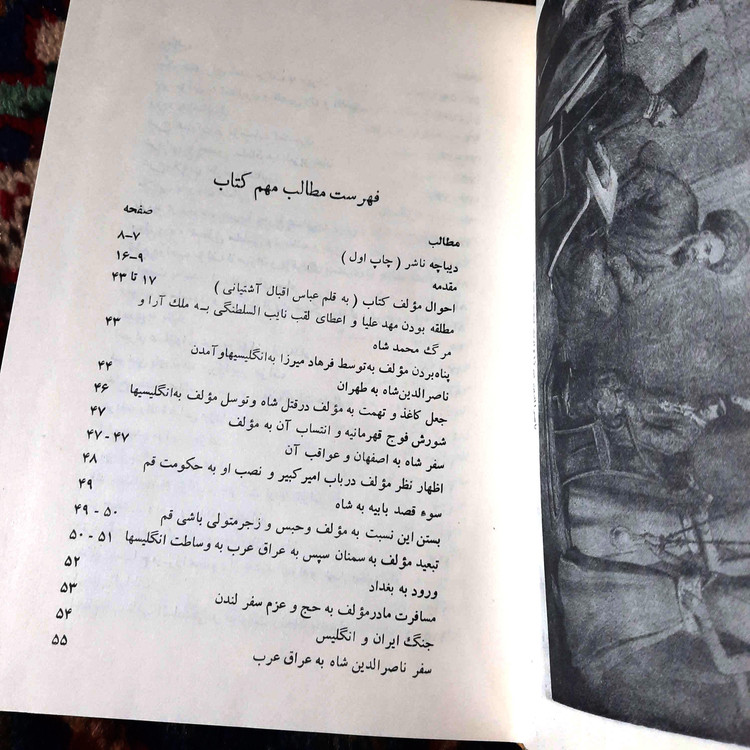 فهرست مطالب مهم کتاب
مطالب صفحه
دیباچه ناشر ( چاپ اول ) ۷-۸
مقدمه ۹-۱۶
احوال مؤلف کتاب ( به قلم عباس اقبال آشتیانی ) ۱۷ تا ۴۳
مطلقه بودن مهد علیا و اعطای لقب نایب السلطنگی بـه ملك آرا و
مرگ محمد شاه ۴۳
پناه‌بردن مؤلف به‌توسط فرهاد میرزا به‌انگلیسیهاو‌آمدن
ناصرالدین‌شاه به طهران ۴۴
جعل کاغذ و تهمت به مؤلف درقتل شاه وتوسل مؤلف به‌انگلیسیها ۴۶
شورش فوج قهرمانیه و انتساب آن به مؤلف ۴۷
سفر شاه به اصفهان و عواقب آن ۴۷-۴۷
اظهار نظر مؤلف درباب امیرکبیر و نصب او به حکومت قم ۴۸
سوء قصد بابیه به شاه ۴۹
بستن این نسبت به مؤلف وحبس و زجرمتولی باشی قم ۵۰ - ۴۹
تبعید مؤلف به سمنان سپس به عراق عرب به وساطت انگلیسها ۵۱ - ۵۰
ورود به بغداد ۵۲
مسافرت مادرمؤلف به حج و عزم سفر لندن ۵۳
جنگ ایران و انگلیس ۵۴
سفر ناصرالدین شاه به عراق عرب ۵۵